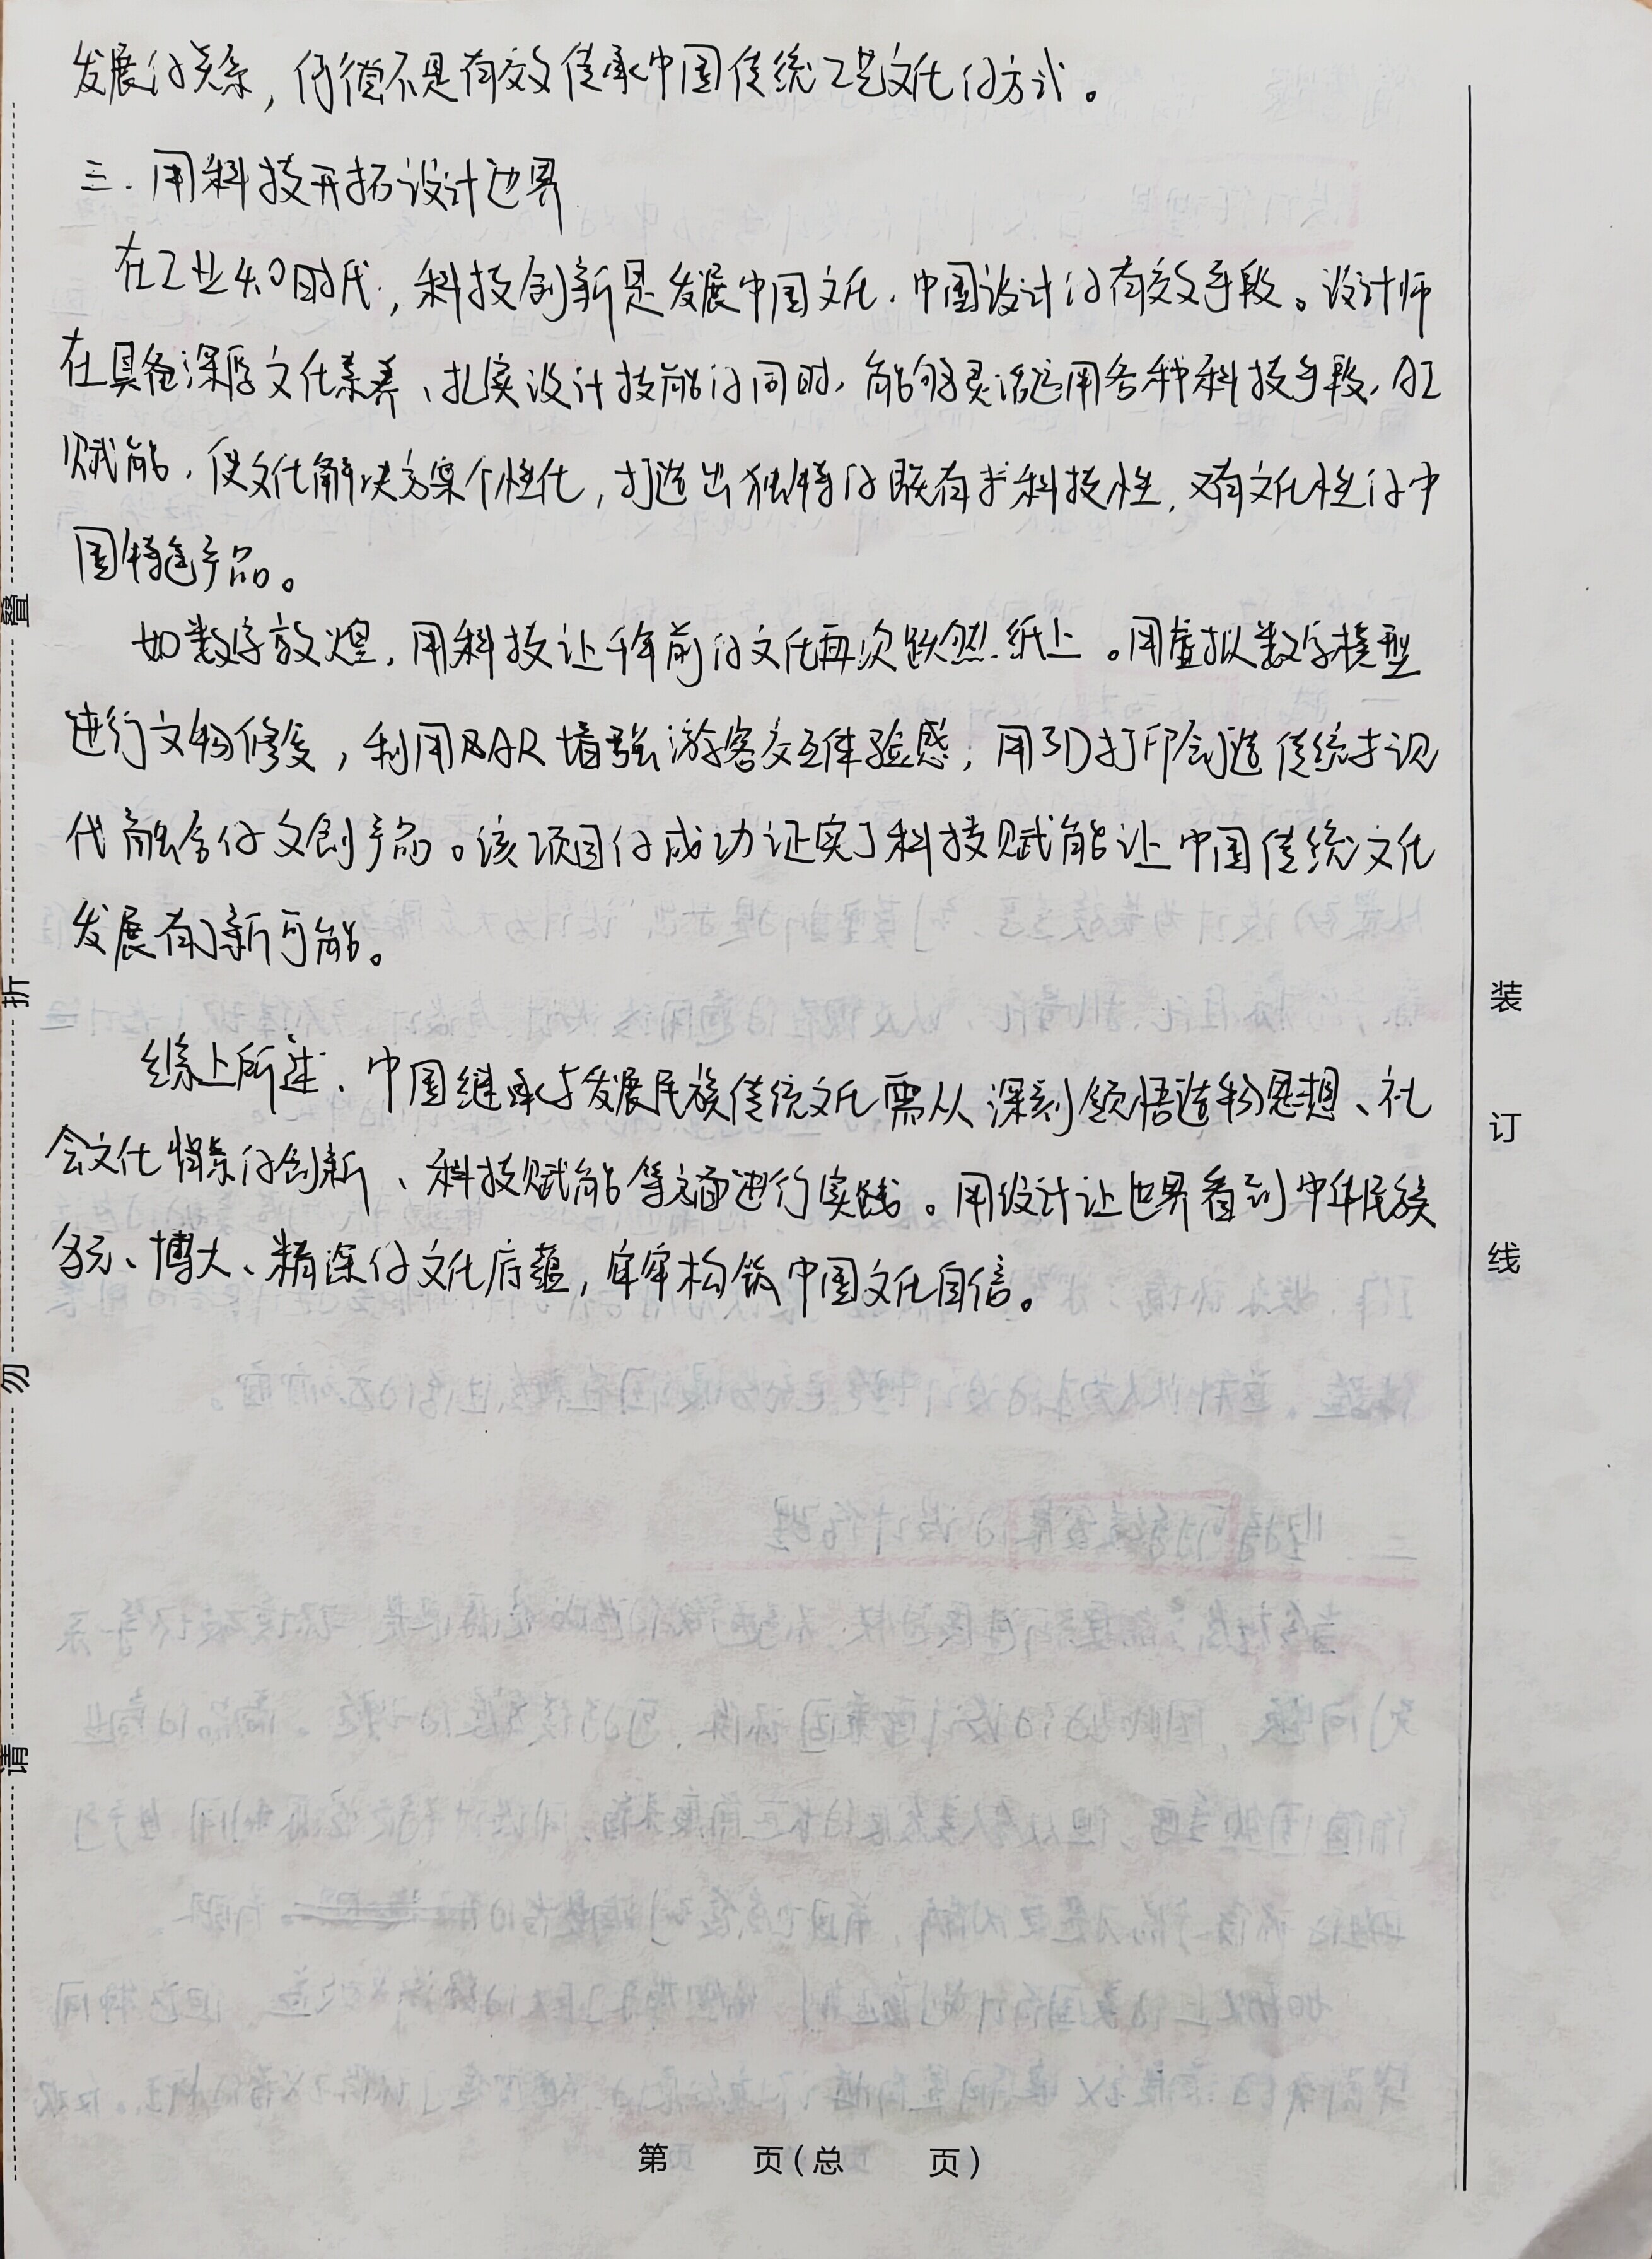 发展的关系，何尝不是有效传承中国传统工艺文化的方式。
三.用科技开拓设计边界
在工业4.0时代，科技创新是发展中国文化、中国设计的有效手段。设计师
在具备深厚文化素养、扎实设计技能的同时，能够灵活运用各种科技手段，AI
赋能，使文化解决方案个性化，打造出独特的既有 科技性，又有文化性的中
国特色产品。
如数字敦煌，用科技让千年前的文化再次跃然纸上。用虚拟数字模型
进行文物修复，利用 AR增强游客交互体验感，用3D打印创造传统 现
代融合的文创产品。该项目的成功证实了科技赋能让中国传统文化
发展有了新可能。
综上所述，中国继承与发展民族传统文化需从深刻领悟造物思想、社
会文化 的创新、科技赋能等方面进行实践。用设计让世界看到中华民族
多元、博大、精深的文化底蕴，牢牢构筑中国文化自信。
叠
折
勿
请
装
订
线
第 页(总 页)